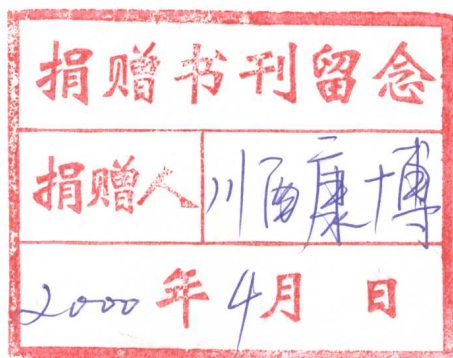 捐赠书刊留念
捐赠人 川西康博
2000年4月 日